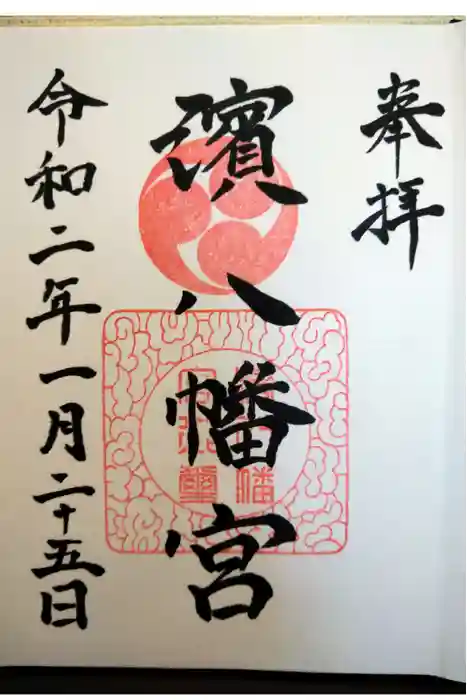 奉拝
濱八幡宮
令和二年一月二十五日